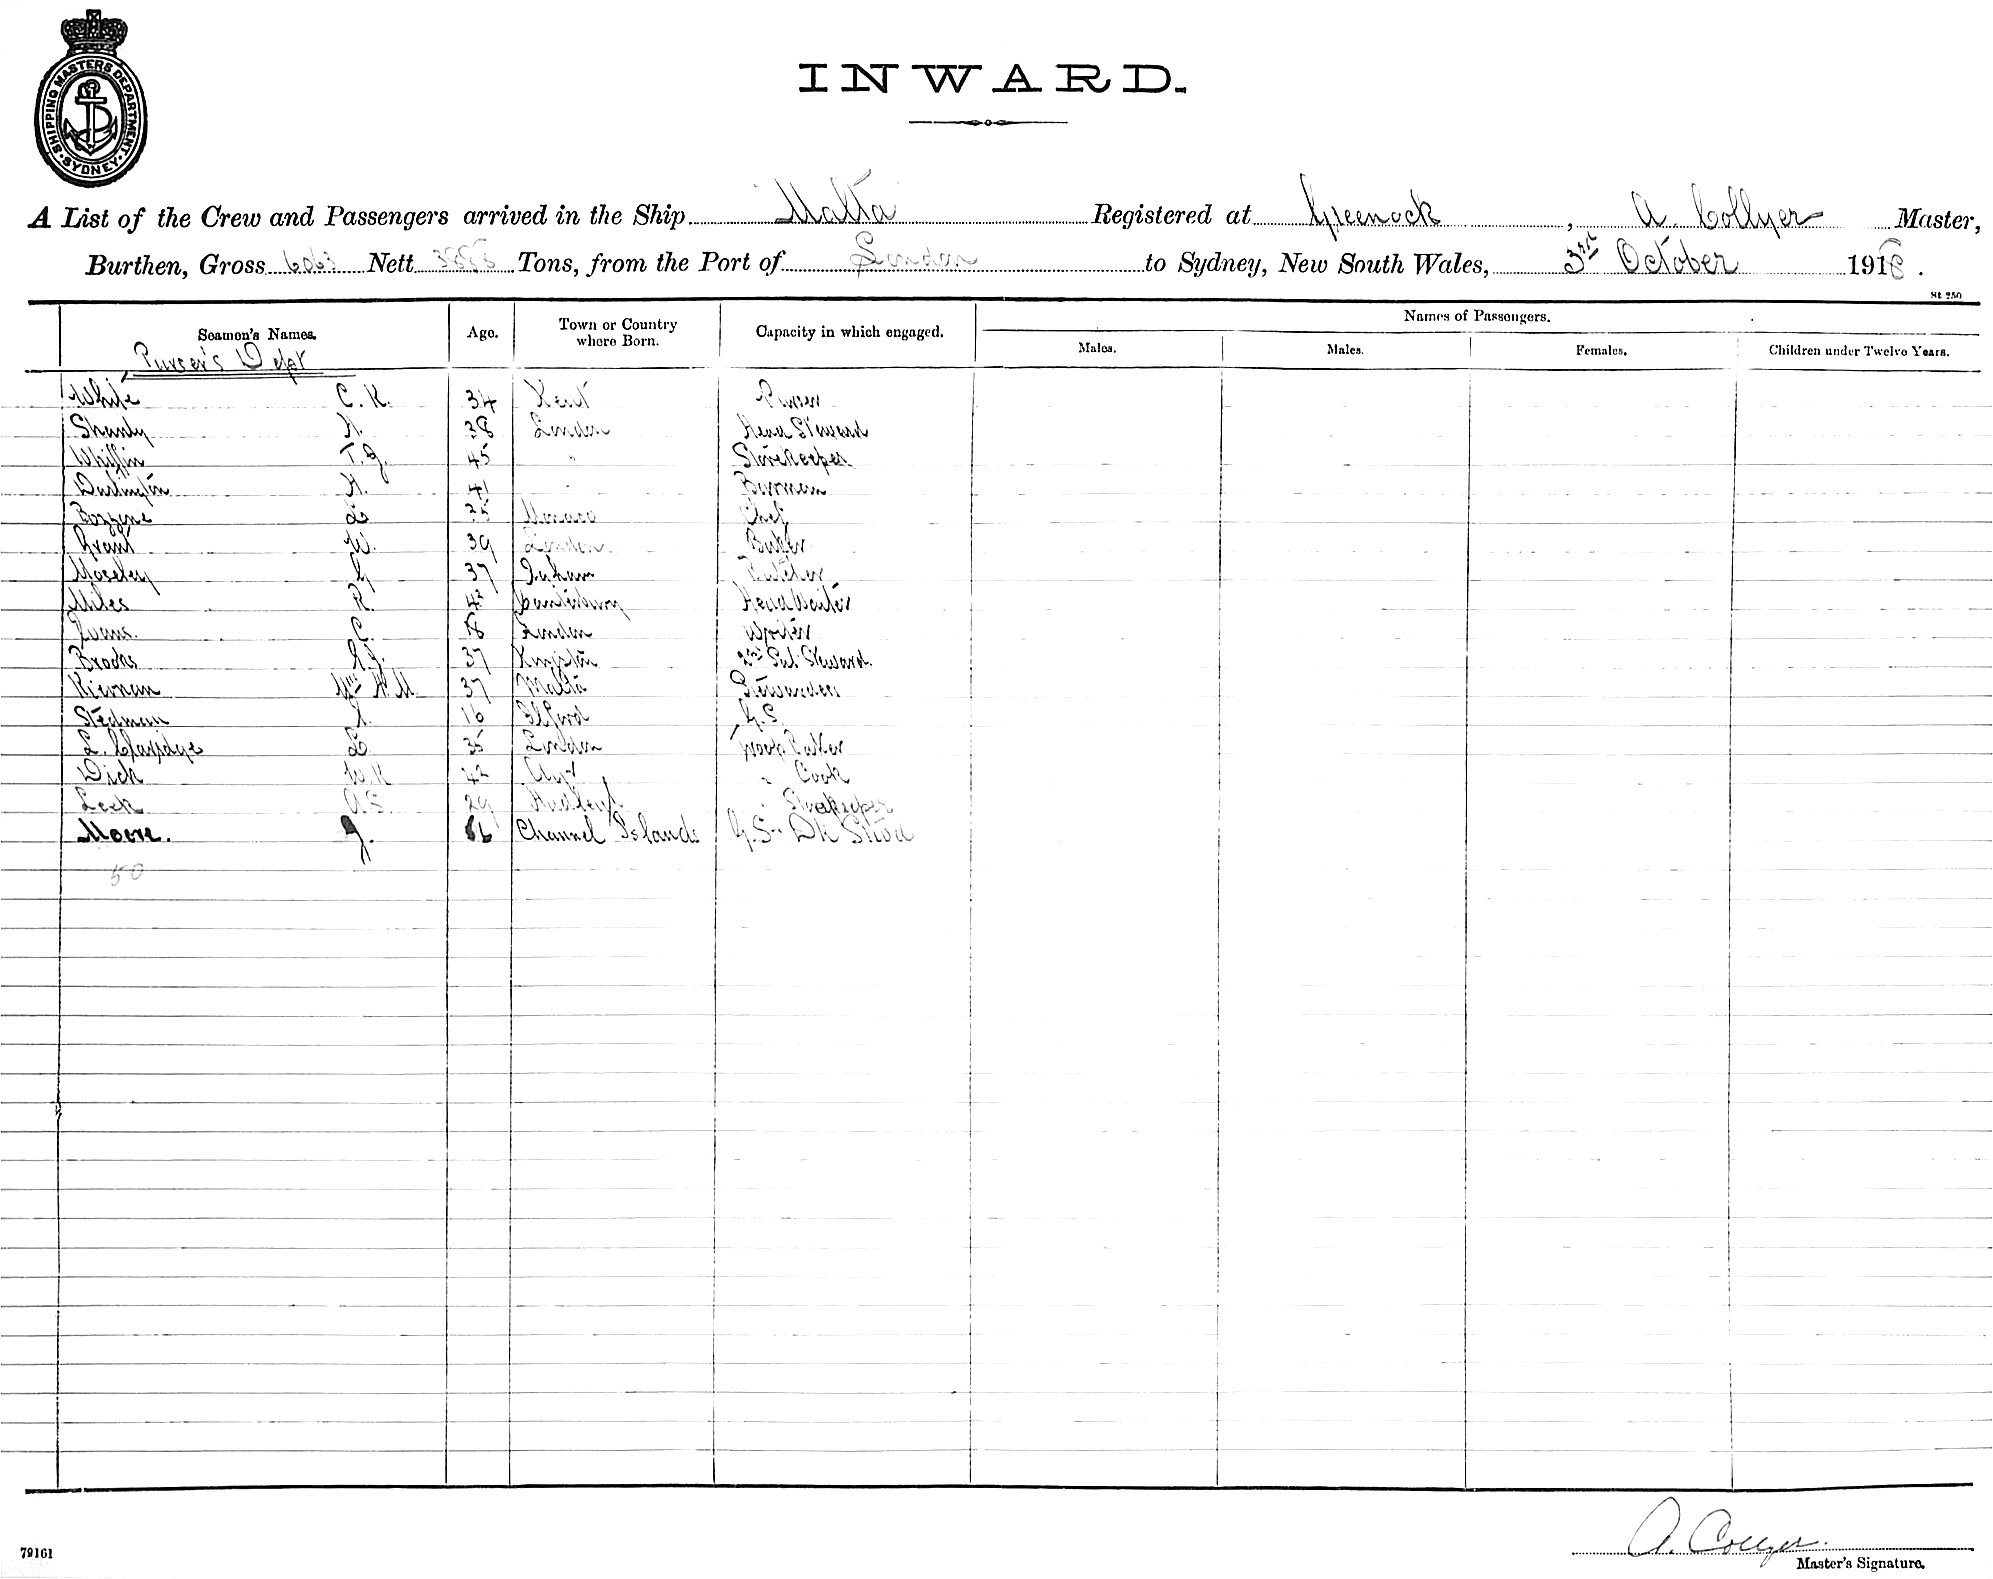 SHIPPING MASTERS DEPARTMENT · SYDNEY ·
INWARD.
A List of the Crew and Passengers arrived in the Ship Malta Registered at Greenock, A. Collyer Master,
Burthen, Gross 6063 Nett Tons, from the Port of London to Sydney, New South Wales, 3rd October 1918.
St 250
Seamen's Names. Age. Town or Country where Born. Capacity in which engaged. Names of Passengers.
Males. Males. Females. Children under Twelve Years.
Purser's Dept
White C. K. 34 Kent Purser
Shanly H. 38 London Head Steward
Whiffin T. G. 45 " Storekeeper
Darlington H. 41 " Barman
Bozzone L 35 Monaco Chef
Grant W. 39 London Baker
Moseley G 37 Butcher
Miles R. 42 Canterbury Head Waiter
Evans. C. 18 London Writer
Brooks 37 Kingston 2nd Sal. Steward.
Kiernan Mrs A. M. 37 Malta Stewardess
Stedman 16 Ilford G.S.
L. Claridge L. 35 London Troop Baker
Dick W. R 42 Ayr " Cook
Leek A. S. 29 " Storekeeper
Moore. J. 16 Channel Islands G.S. Dk Stwd
50
A. Collyer.
79161
Master's Signature.